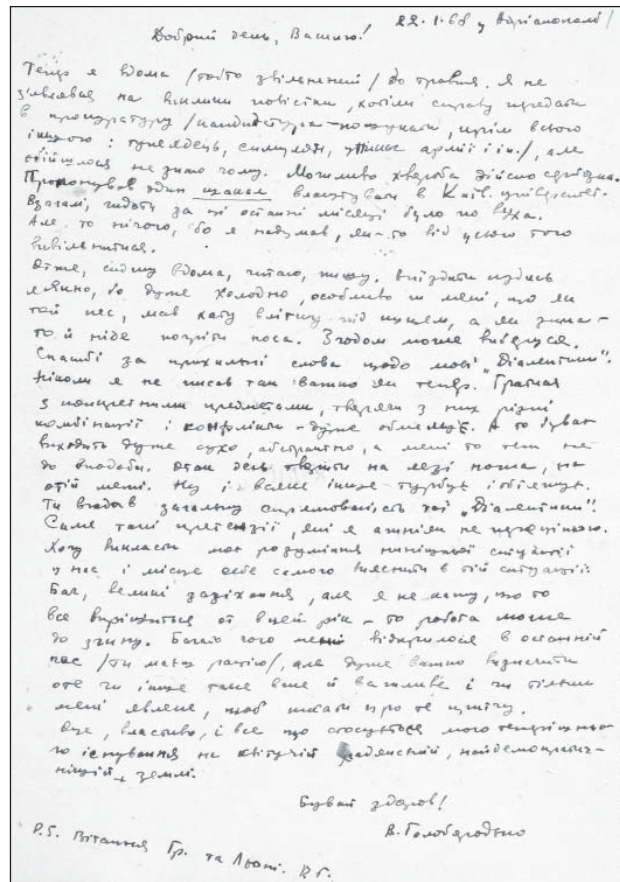 22.1.68 у Адріанополі
Добрий день, Василю!
Тепер я вдома /тобто звільнений/ до травня. Я не
з'являвся на виклики повістки, хотіли справу передати
в прокуратуру /кандидатура – крім всього
іншого: тунеядець, симулянт, армії і ін./, але
обійшлося не знаю чому. Можливо хвороба дійсно серйозна.
Пропонував один влаштувати в Київ. університет.
Взагалі, гидоти за ці останні місяці було по вуха.
Але то нічого, бо я надумав, як-то від усього того
вивільнитися.
Отже, сиджу вдома, читаю, пишу. Виїздити кудись
лячно, бо дуже холодно, особливо ж мені, що як
той пес, мав хату влітку під кущем, а як зима –
то й ніде погріти носа. Згодом може виберуся.
Спасибі за прихильні слова щодо моєї "Діалектики".
Ніколи я не писав так важко як тепер. Гратися
з конкретними предметами, творячи з них різні
комбінації і конфлікти – дуже обмежує. А то буває
виходить дуже сухо, абстрактно, а мені то теж не
до вподоби. Отак день на лезі ножа, на
отій межі. Ну і всяке інше турбує і обліплює.
Ти вгадав загальну спрямованість тої "Діалектики".
Саме такі претензії, які я аж ніяк не
Хочу викласти моє розуміння нинішньої ситуації
у нас і місце себе самого вияснити в тій ситуації.
Бач, великі зазіхання, але я не кажу, що то
все вирішиться от в цей рік – то робота може
до згину. Багато чого мені відкрилося в останній
час /ти маєш рацію/, але дуже важко визначити
оте чи інше таке вже й важливе і чи тільки
мені явлене, щоб писати про те
Оце, властиво, і все що стосується мого теперішньо-
го існування на квітучій радянській, найдемократич-
нішій землі.
Бувай здоров!
В. Голобородько
P.S. Вітання Гр. та Люті. В.Г.